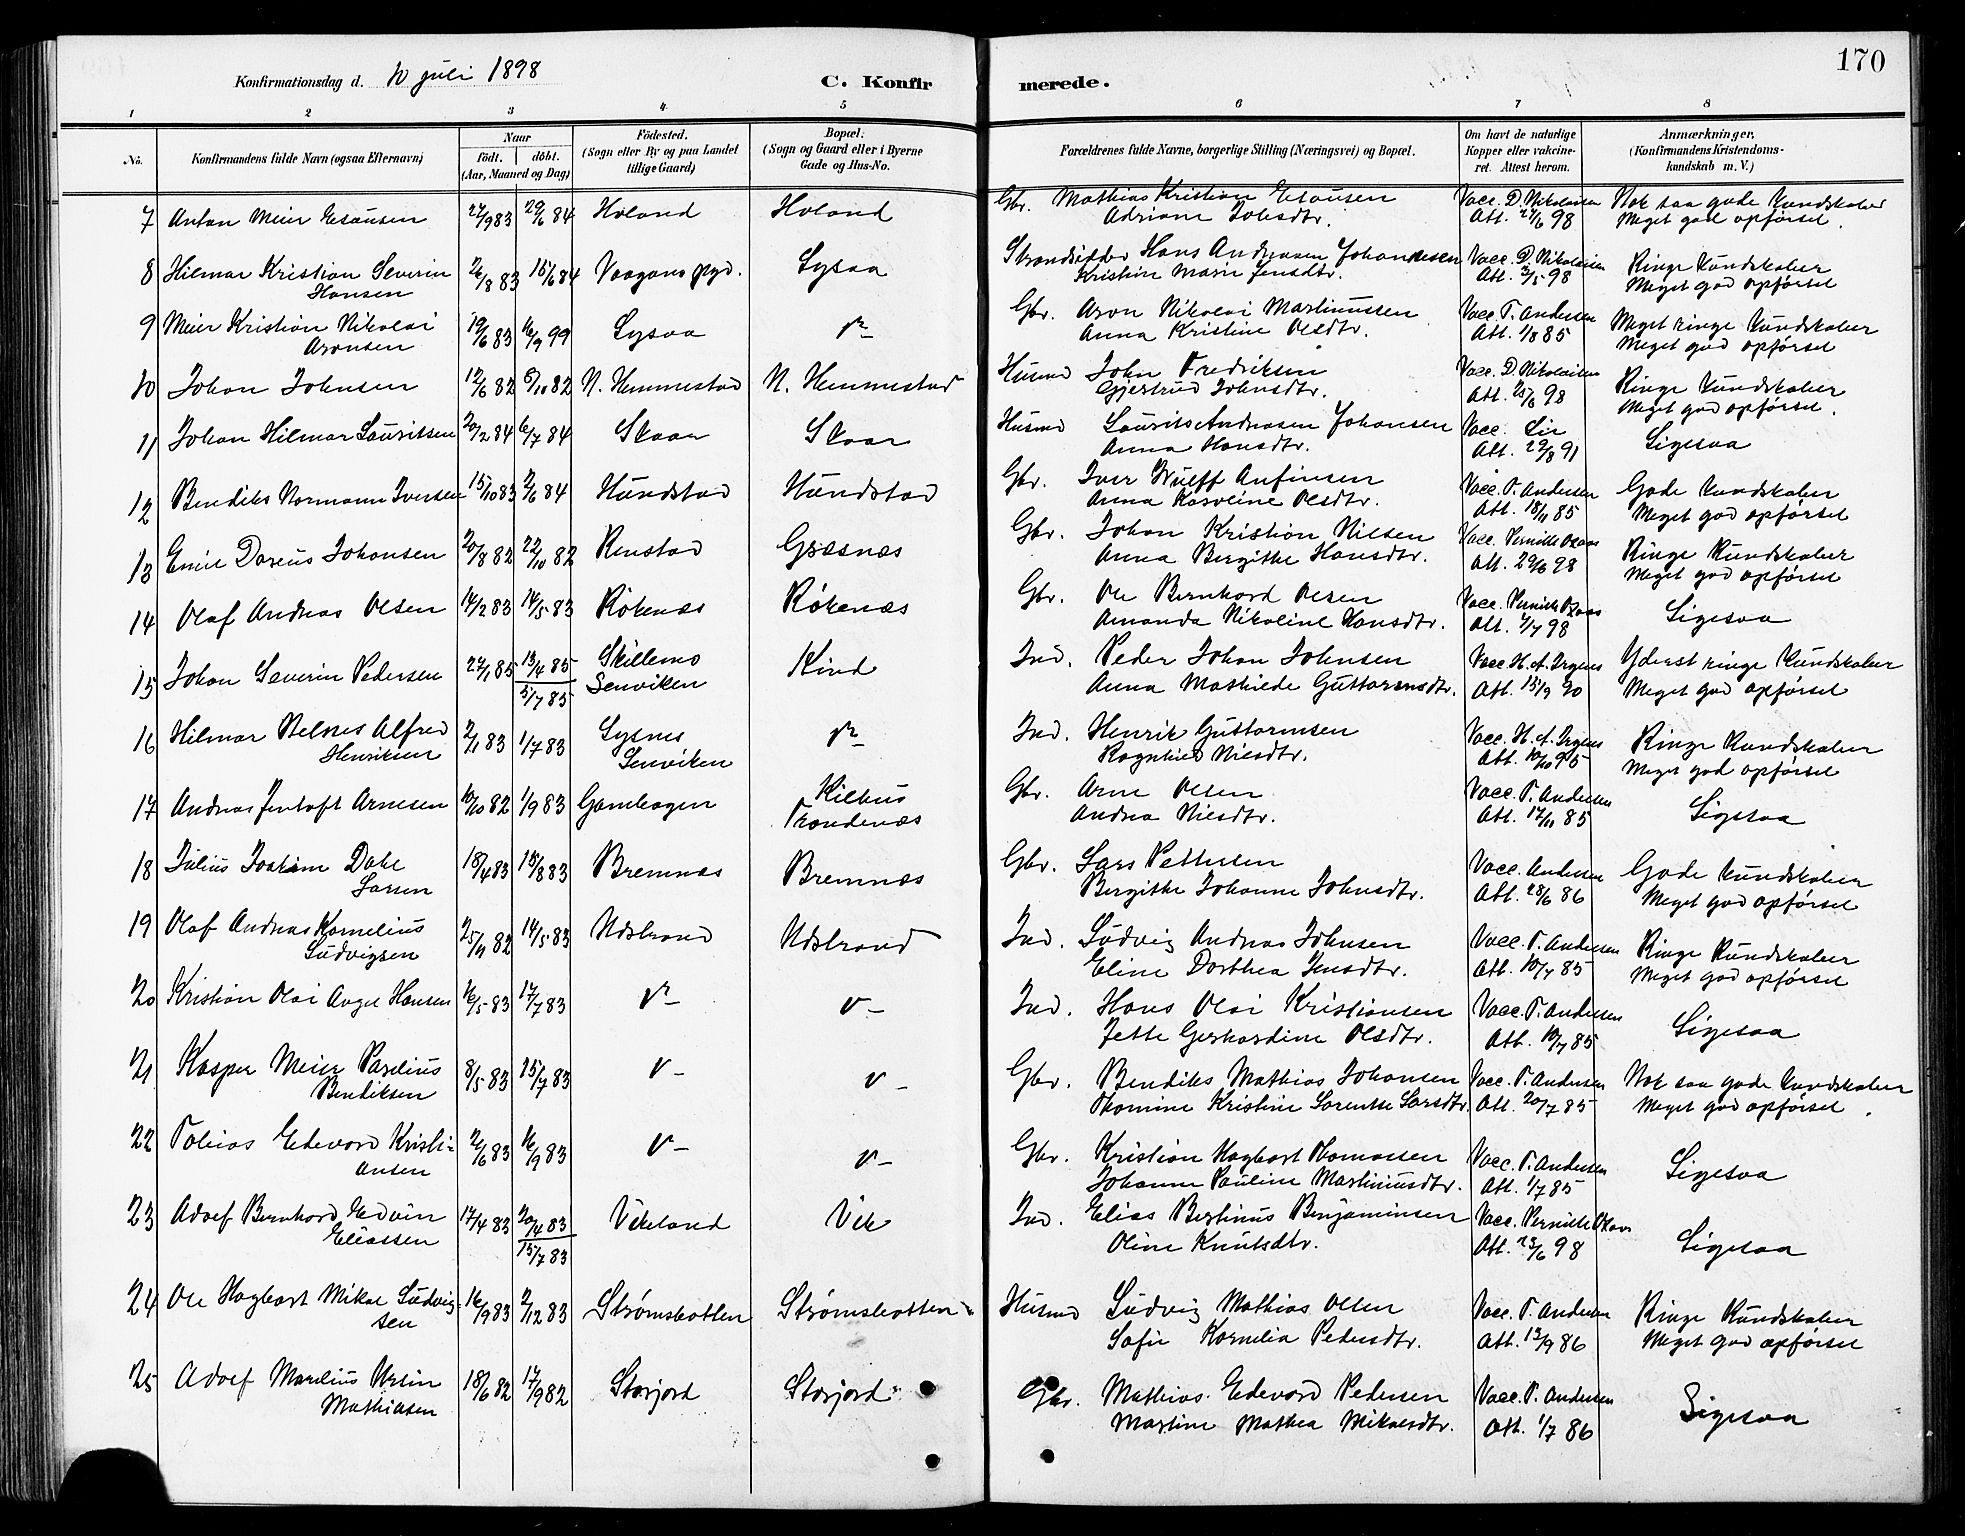 170
Konfirmationsdag d. 10 juli 1898
C. Konfirmerede.
1 2 3 4 5 6 7 8
No.
Konfirmandens fulde Navn (ogsaa Efternavn)
Naar
födt. döbt.
(Aar, Maaned og Dag)
Födested.
(Sogn eller By og paa Landet
tillige Gaard)
Bopæl.
(Sogn og Gaard eller i Byerne
Gade og Hus-No.
Forældrenes fulde Navne, borgerlige Stilling (Næringsvei) og Bopæl.
Om havt de naturlige
Kopper eller vakcine-
ret. Attest herom.
Anmærkninger,
(Konfirmandens Kristendoms-
kundskab m. V.)
7 Anton Meier Esausen 27/9 83 29/6 84 Holand Holand Gbr. Mathias Kristian Esausen Vacc. D. Nikolaisen Nok saa gode Kundskaber
Adriane Johsdtr. Att. 98 Meget god opførsel
8 Hilmar Kristian Severin 26/8 83 15/6 84 Vaagans pgd. Sysaa Strandsidder Hans Andreasen Johannesen Vacc. D. Nikolaisen Ringe Kundskaber
Hansen Kristine Marie Jensdtr. Att. 3/5 98 Meget god opførsel
9 Meier Kristian Nikolai 19/6 83 16/9 99 Sysaa Gbr. Aron Nikolai Martinussen Vacc. T. Andersen Meget ringe Kundskaber
Aronsen Anna Kristine Olsdtr. Att. 1/8 85 Meget god opførsel
10 Johan Johnsen 12/6 82 8/10 82 N. Hemmestad N. Hemmestad Husmd John Fredriksen Vacc. D. Nikolaisen Ringe Kundskaber
Gjertrud Johnsdtr. Att. 25/6 98 Meget god opførsel.
11 Johan Hilmar Lauritsen 20/2 84 6/7 84 Skaar Skaar Husmd Laurits Andreasen Johansen Vacc. Lie Ligesaa
Anna Hansdtr. Att. 29/8 91
12 Bendiks Normann Iversen 15/10 83 2/6 84 Hundstad Hundstad Gbr. Iver Wulff Anfinsen Vacc. T. Andersen Gode Kundskaber
Anna Karoline Olsdtr. Att. 18/11 85 Meget god opførsel
13 Emil Dareus Johansen 20/8 82 22/10 82 Renstad Græsnæs Gbr. Johan Kristian Nilsen Vacc. Pernille Ringe Kundskaber
Anna Bergitte Hansdtr. Att. 29/6 98 Meget god opførsel
14 Olaf Andreas Olsen 14/2 83 14/5 83 Rökenæs Rökenæs Gbr. Ole Bernhard Olsen Vacc. Pernille Ligesaa
Amanda Nikoline Hansdtr. Att. 2/7 98
15 Johan Severin Pedersen 27/1 85 13/4 85 Skillemo Kind Ind. Peder Johan Johnsen Vacc. H. A. Irgens Yderst ringe Kundskaber
5/7 85 Senviken Anna Mathilde Guttormsdtr. Att. 15/9 90 Meget god opførsel
16 Hilmar Alfred 2/1 83 1/7 83 Lysnes Ind. Henrik Guttormsen Vacc. H. A. Irgens Ringe Kundskaber
Henriksen Senviken Ragnhild Nilsdtr. Att. 10/10 95 Meget god opførsel
17 Andreas Jentoft Arnesen 10/10 82 1/9 83 Gambogen Kilhus Gbr. Arne Olsen Vacc. T. Andersen Ligesaa
Trondenæs Andrea Nilsdtr. Att. 17/11 85
18 Julius Joakim Dahl 18/4 83 19/8 83 Bremnæs Bremnæs Gbr. Lars Pettersen Vacc. Andersen Gode Kundskaber
Larsen Bergitte Johanne Johnsdtr. Att. 28/6 86 Meget god opførsel
19 Olaf Andreas Kornelius 25/11 82 14/5 83 Udstrand Udstrand Ind. Ludvig Andreas Johnsen Vacc. T. Andersen Ringe Kundskaber
Ludvigsen Eline Dorthea Jensdtr. Att. 10/7 85 Meget god opførsel
20 Kristian Olai Angel Hansen 16/5 83 17/7 83 Ind. Hans Olai Kristiansen Vacc. T. Andersen Ligesaa
Jette Gerhardine Olsdtr. Att. 10/7 85
21 Kasper Meier Parelius 8/5 83 15/7 83 Gbr. Bendiks Mathias Johansen Vacc. T. Andersen Nok saa gode Kundskaber
Bendiksen Thomine Kristine Larsdtr. Att. 20/7 85 Meget god opførsel.
22 Tobias Edevard Kristi- 2/6 83 16/9 83 Gbr. Kristian Hagbart Thomassen Vacc. T. Andersen Ligesaa
ansen Johanne Pauline Martinusdtr. Att. 1/7 85
23 Adolf Bernhard Edvin 17/4 83 20/4 83 Vikeland Vik Ind. Elias Bertinus Benjaminsen Vacc. Pernille Ligesaa
Eliassen 15/7 83 Oline Knutsdtr. Att. 23/6 98
24 Ole Hagbart Mikal Ludvig- 16/9 83 2/12 83 Strømsbotten Strømsbotten Husmd Ludvig Mathias Olsen Vacc. T. Andersen Ringe Kundskaber
sen Sofie Kornelia Pedersdtr. Att. 13/9 86 Meget god opførsel
25 Adolf Marelius Ursin 18/6 82 17/9 82 Storjord Storjord Gbr. Mathias Edevard Pedersen Vacc. T. Andersen Ligesaa
Mathiasen Martine Mathea Mikalsdtr. Att. 1/7 86